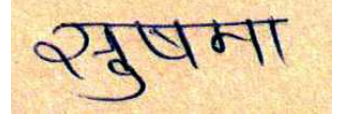 सुषमा